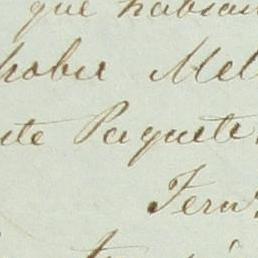 que habian
haber Mel
nte Paquete
Fern